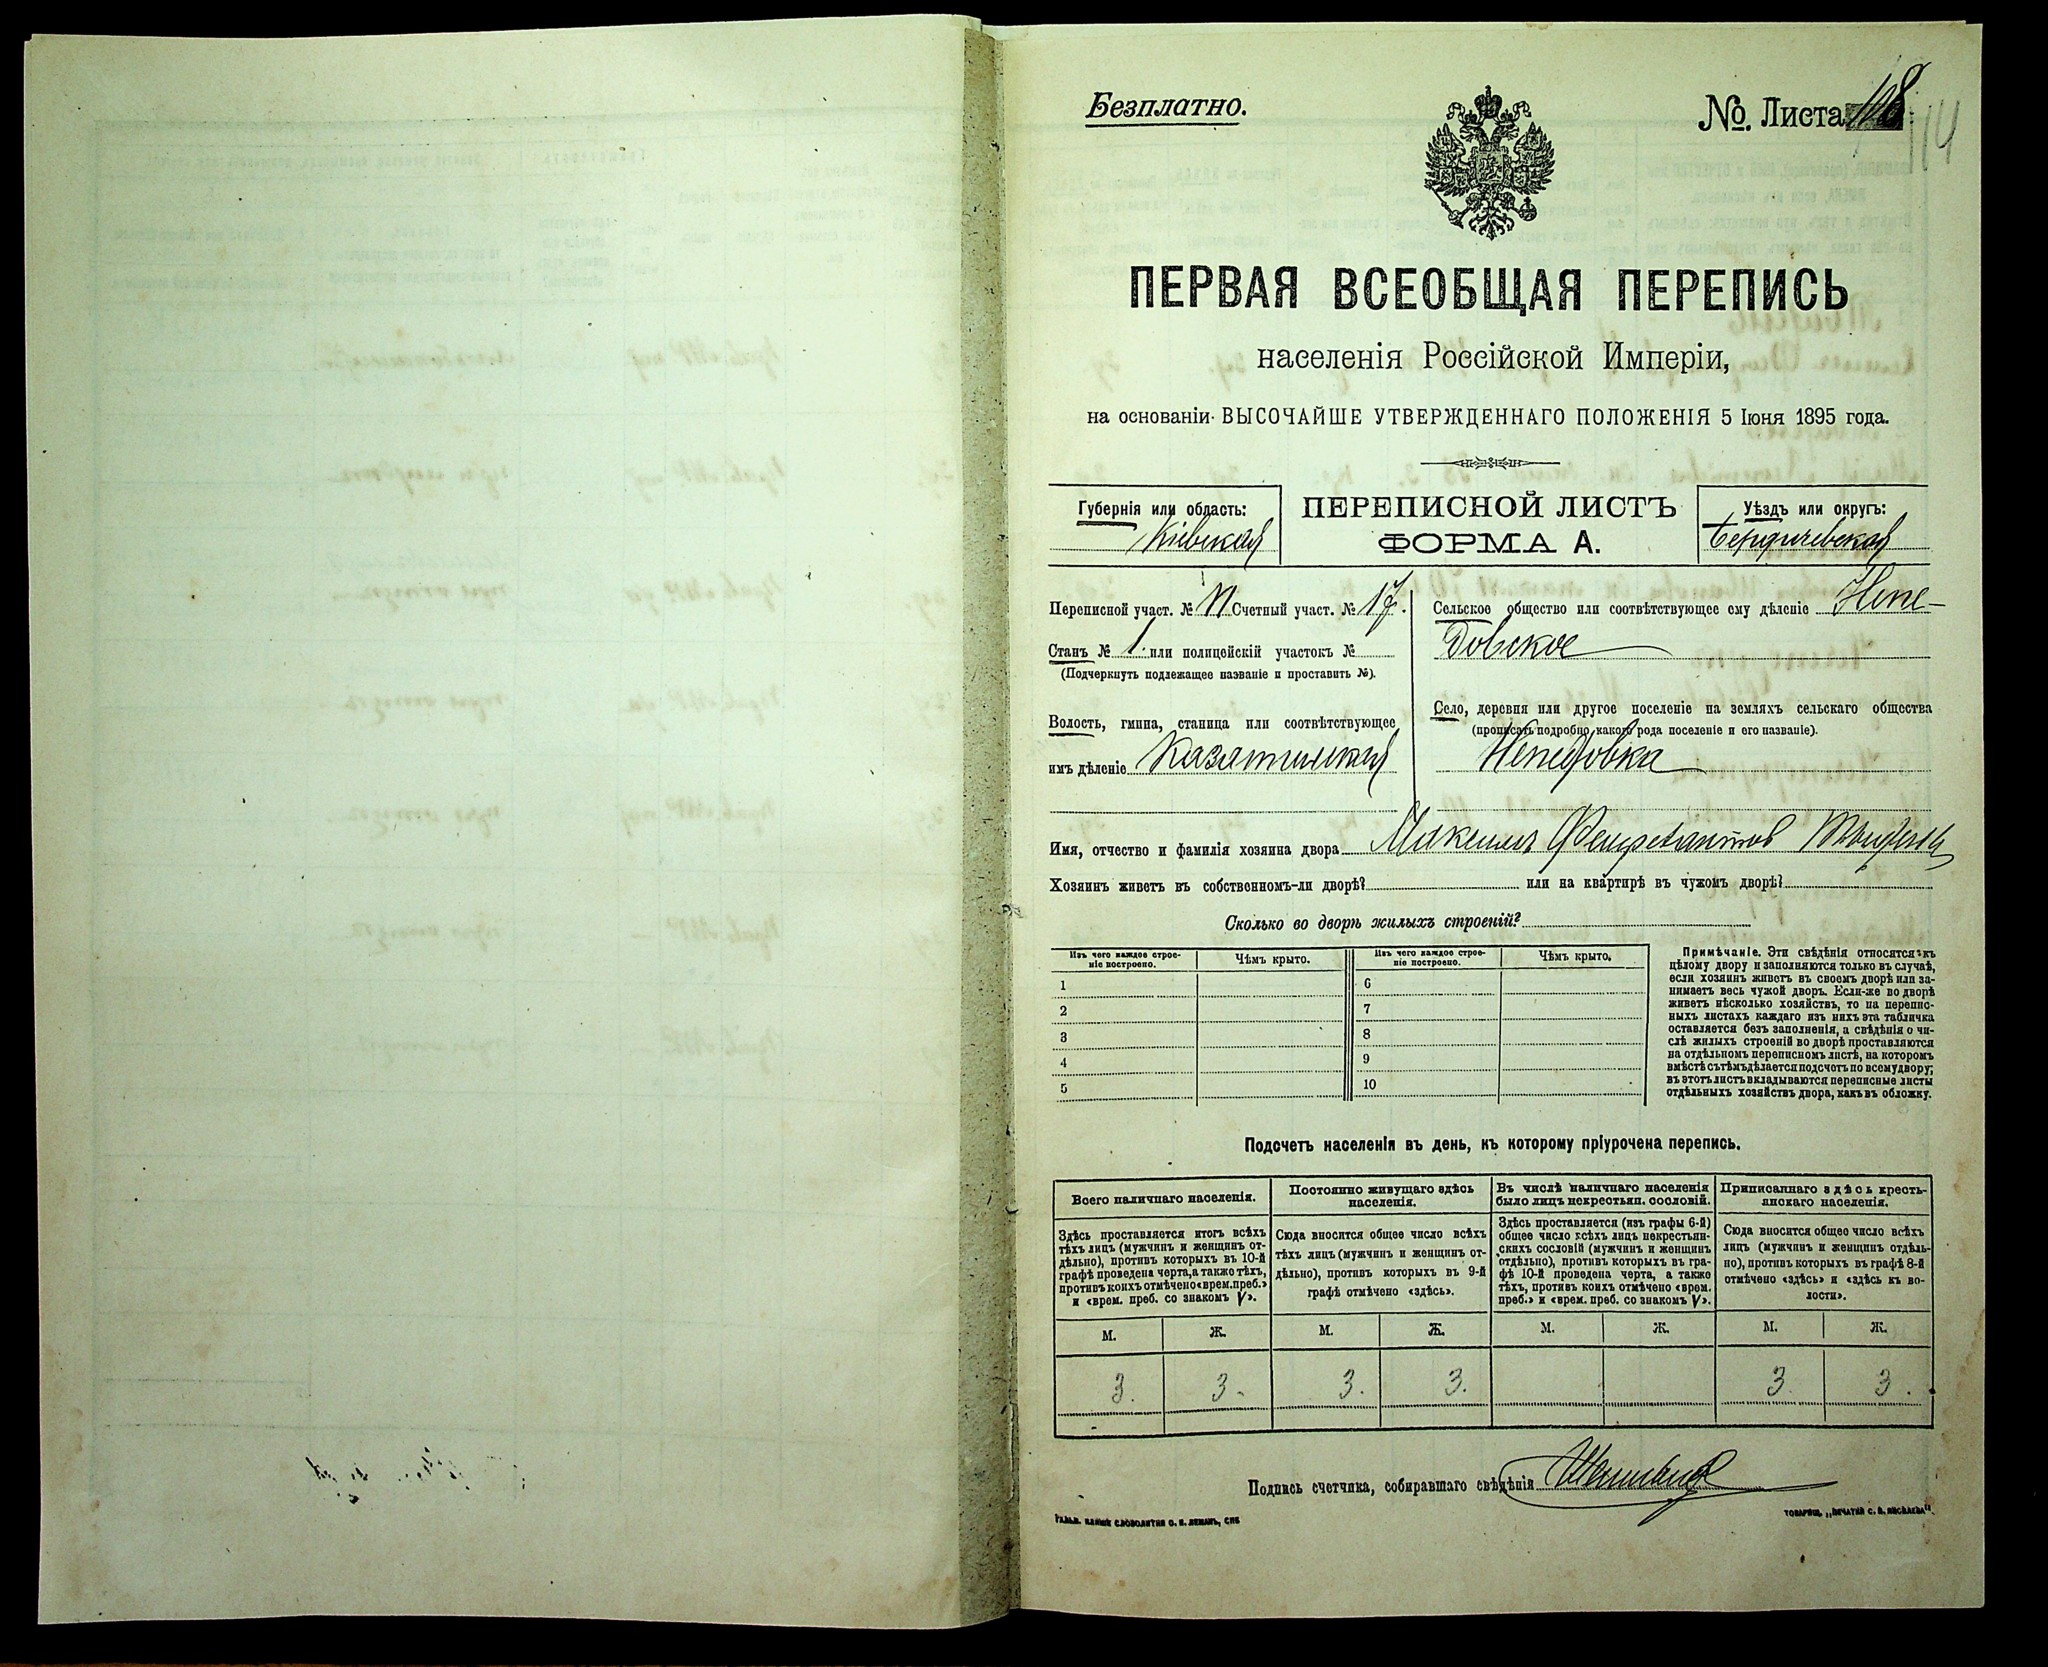 Безплатно.
№. Листа 118.
114
ПЕРВАЯ ВСЕОБЩАЯ ПЕРЕПИСЬ
населенія Россійской Имперіи,
на основаніи ВЫСОЧАЙШЕ УТВЕРЖДЕННАГО ПОЛОЖЕНІЯ 5 Іюня 1895 года.
Губернія или область:
Кіевская
ПЕРЕПИСНОЙ ЛИСТЪ
ФОРМА А.
Уѣздъ или округъ:
Бердичевская
Переписной участ. № Счетный участ. № 17.
Станъ № 1. или полицейскій участокъ №
(Подчеркнуть подлежащее названіе и проставить №).
Волость, гмина, станица или соотвѣтствующее
имъ дѣленіе Казятинская
Сельское общество или соотвѣтствующее ему дѣленіе Непе-
довское
Село, деревня или другое поселеніе на земляхъ сельскаго общества
(прописать подробно какого рода поселеніе и его названіе).
Непедовка
Имя, отчество и фамилія хозяина двора Максимъ
Хозяинъ живетъ въ собственномъ-ли дворѣ? или на квартирѣ въ чужомъ дворѣ?
Сколько во дворѣ жилыхъ строеній?
Изъ чего каждое строе-
ніе построено.
Чѣмъ крыто.
Изъ чего каждое строе-
ніе построено.
Чѣмъ крыто.
1 6
2 7
3 8
4 9
5 10
Примѣчаніе. Эти свѣдѣнія относятся къ
цѣлому двору и заполняются только въ случаѣ,
если хозяинъ живетъ въ своемъ дворѣ или за-
нимаетъ весь чужой дворъ. Если-же во дворѣ
живетъ нѣсколько хозяйствъ, то на перепис-
ныхъ листахъ каждаго изъ нихъ эта табличка
оставляется безъ заполненія, а свѣдѣнія о чи-
слѣ жилыхъ строеній во дворѣ проставляются
на отдѣльномъ переписномъ листѣ, на которомъ
вмѣстѣ съ тѣмъ дѣлается подсчетъ по всему двору;
въ этотъ листъ вкладываются переписные листы
отдѣльныхъ хозяйствъ двора, какъ въ обложку.
Подсчетъ населенія въ день, къ которому пріурочена перепись.
Всего наличнаго населенія.
Здѣсь проставляется итогъ всѣхъ
тѣхъ лицъ (мужчинъ и женщинъ от-
дѣльно), противъ которыхъ въ 10-й
графѣ проведена черта, а также тѣхъ,
противъ коихъ отмѣчено «врем. преб.»
и «врем. преб. со знакомъ V».
Постоянно живущаго здѣсь
населенія.
Сюда вносится общее число всѣхъ
тѣхъ лицъ (мужчинъ и женщинъ от-
дѣльно), противъ которыхъ въ 9-й
графѣ отмѣчено «здѣсь».
Въ числѣ наличнаго населенія
было лицъ некрестьян. сословій.
Здѣсь проставляется (изъ графы 6-й)
общее число всѣхъ лицъ некрестьян-
скихъ сословій (мужчинъ и женщинъ
отдѣльно), противъ которыхъ въ гра-
фѣ 10-й проведена черта, а также
тѣхъ, противъ коихъ отмѣчено «врем.
преб.» и «врем. преб. со знакомъ V».
Приписаннаго здѣсь кресть-
янскаго населенія.
Сюда вносится общее число всѣхъ
лицъ (мужчинъ и женщинъ отдѣль-
но), противъ которыхъ въ графѣ 8-й
отмѣчено «здѣсь» и «здѣсь въ во-
лости».
М. Ж. М. Ж. М. Ж. М. Ж.
3. 3. 3. 3. 3. 3.
Подпись счетчика, собиравшаго свѣдѣнія